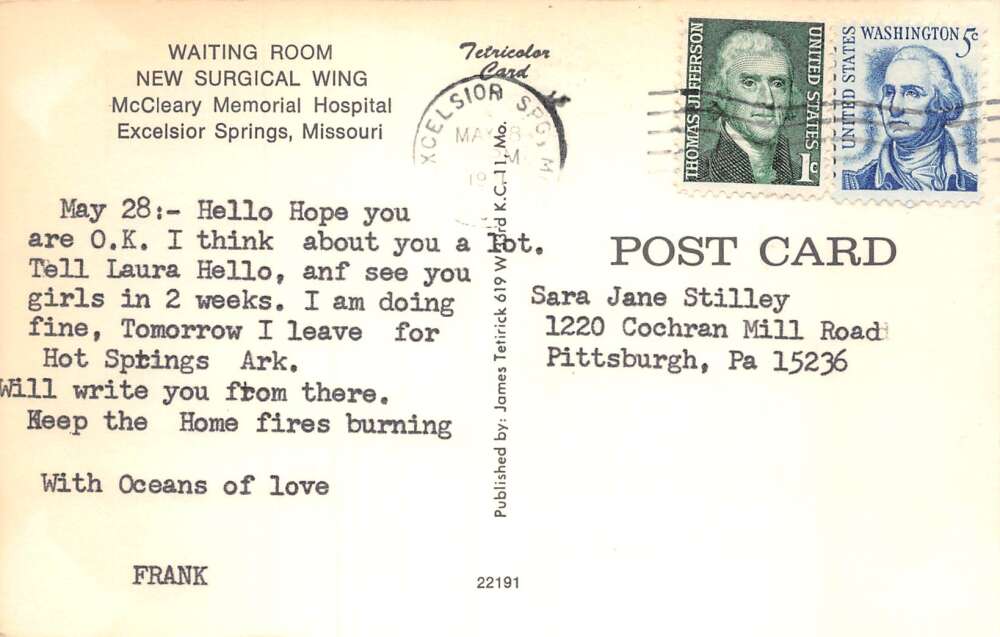 WAITING ROOM
NEW SURGICAL WING
McCleary Memorial Hospital
Excelsior Springs, Missouri
Tetricolor
Card
XCELSIOR SPG
MAY 28
M
19
THOMAS JEFFERSON
UNITED STATES
1c
UNITED STATES
WASHINGTON 5c
May 28:- Hello Hope you
are O.K. I think about you a lot.
Tell Laura Hello, anf see you
girls in 2 weeks. I am doing
fine, Tomorrow I leave for
Hot Sptings Ark.
Will write you ftom there.
Keep the Home fires burning
With Oceans of love
FRANK
Published by: James Tetirick 619 W rd K.C. 11, Mo.
22191
POST CARD
Sara Jane Stilley
1220 Cochran Mill Road
Pittsburgh, Pa 15236